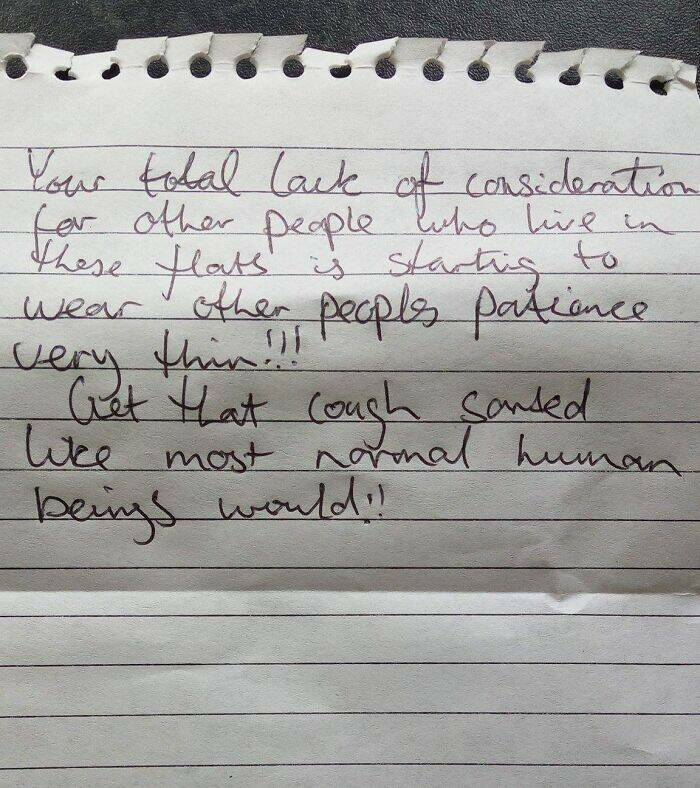 Your total lack of consideration
for other people who live in
these flats is starting to
wear other peoples patience
very thin!!!
Get that cough sorted
like most normal human
beings would!!